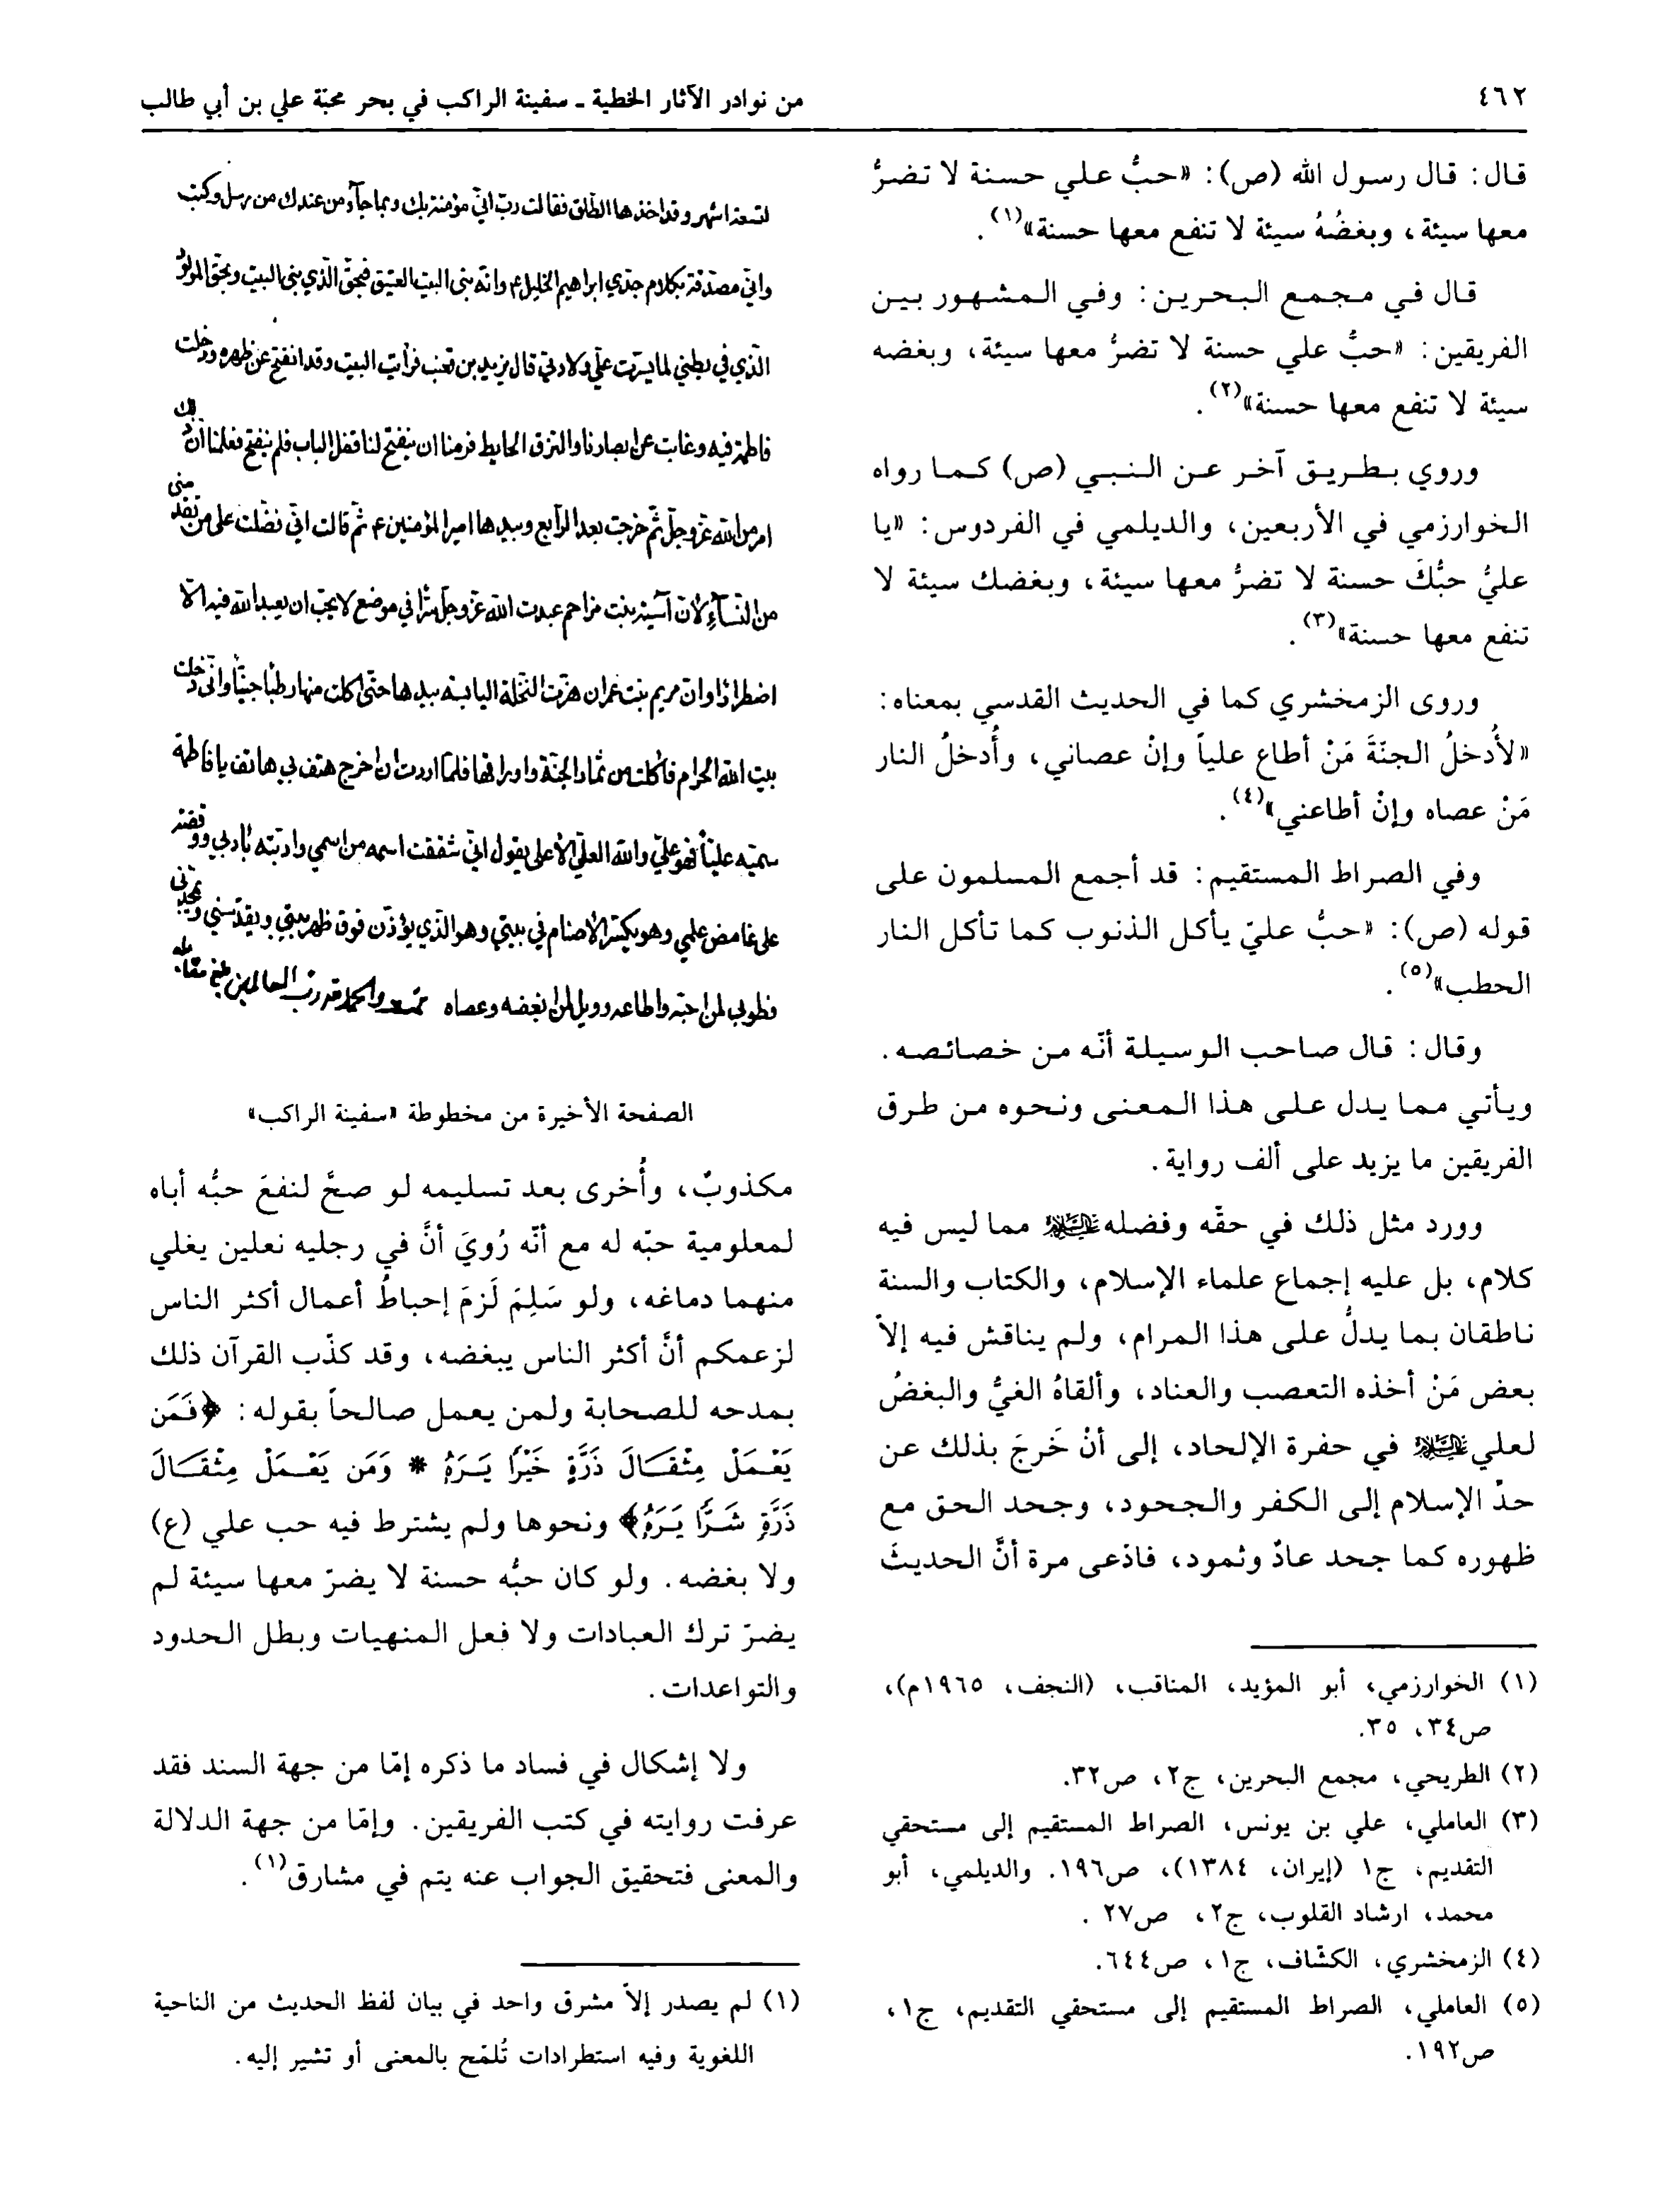 ٤٦٢
من نوادر الآثار الخطية ـ سفينة الراكب في بحر محبّة علي بن أبي طالب
قال: قال رسول الله (ص): «حبُّ علي حسنة لا تضرُّ
معها سيئة، وبغضُهُ سيئة لا تنفع معها حسنة»(١).
قال في مجمع البحرين: وفي المشهور بين
الفريقين: «حبُّ علي حسنة لا تضرُّ معها سيئة، وبغضه
سيئة لا تنفع معها حسنة»(٢).
وروي بطريق آخر عن النبي (ص) كما رواه
الخوارزمي في الأربعين، والديلمي في الفردوس: «يا
عليُّ حبُّكَ حسنة لا تضرُّ معها سيئة، وبغضك سيئة لا
تنفع معها حسنة»(٣).
وروى الزمخشري كما في الحديث القدسي بمعناه:
«لأُدخلُ الجنّةَ مَنْ أطاع علياً وإنْ عصاني، وأُدخلُ النار
مَنْ عصاه وإنْ أطاعني»(٤).
وفي الصراط المستقيم: قد أجمع المسلمون على
قوله (ص): «حبُّ عليّ يأكل الذنوب كما تأكل النار
الحطب»(٥).
وقال: قال صاحب الوسيلة أنّه من خصائصه.
ويأتي مما يدل على هذا المعنى ونحوه من طرق
الفريقين ما يزيد على ألف رواية.
وورد مثل ذلك في حقّه وفضله عليه السلام مما ليس فيه
كلام، بل عليه إجماع علماء الإسلام، والكتاب والسنة
ناطقان بما يدلُّ على هذا المرام، ولم يناقش فيه إلاّ
بعض مَنْ أخذه التعصب والعناد، وألقاهُ الغيُّ والبغضُ
لعلي عليه السلام في حفرة الإلحاد، إلى أنْ خَرجَ بذلك عن
حدّ الإسلام إلى الكفر والجحود، وجحد الحق مع
ظهوره كما جحد عادٌ وثمود، فادّعى مرة أنَّ الحديثَ
(١) الخوارزمي، أبو المؤيد، المناقب، (النجف، ١٩٦٥م)،
ص٣٤، ٣٥.
(٢) الطريحي، مجمع البحرين، ج٢، ص٣٢.
(٣) العاملي، علي بن يونس، الصراط المستقيم إلى مستحقي
التقديم، ج١ (إيران، ١٣٨٤)، ص١٩٦. والديلمي، أبو
محمد، ارشاد القلوب، ج٢، ص٢٧ .
(٤) الزمخشري، الكشّاف، ج١، ص٦٤٤.
(٥) العاملي، الصراط المستقيم إلى مستحقي التقديم، ج١،
ص١٩٢.
لتسعة اشهر وقد اخذها الطلق فقالت ربّ انّي مؤمنة بك وبما جآء من عندك من رسل وكتب
وانّي مصدّقة بكلام جدّي ابراهيم الخليل ع وانّه بنى البيت العتيق فبحقّ الّذي بنى البيت وبحقّ المولود
الّذي في بطني لما يسّرت علّي ولادتي قال يزيد بن قعنب فرأيت البيت وقد انفتح عن ظهره ودخلت
فاطمة فيه وغابت عن ابصارنا والتزق الحايط فرمنا ان ينفتح لنا قفل الباب فلم ينفتح فعلمنا انّ ذلك
امر من الله عزّ وجلّ ثمّ خرجت بعد الرابع وبيدها امير المؤمنين ع ثمّ قالت انّي فضّلت على من تقدّمنى
من النّسآء لأنّ آسية بنت مزاحم عبدت الله عزّ وجلّ سرّا في موضع لا يحبّ ان يعبد الله فيه الّا
اضطرارًا وانّ مريم بنت عمران هزّت النّخلة اليابسة بيدها حتّى اكلت منها رطباً جنيّاً وانّى دخلت
بيت الله الحرام فأكلت من ثمار الجنّة واوراقها فلمّا اردت ان اخرج هتف بي هاتف يا فاطمة
سميّه عليّاً فهو عليّ والله العليّ الأعلى يقول انّي شققت اسمه من اسمي وادبّته بأدبي ووقفته
على غامض علمي وهو يكسّر الأصنام في بيتي وهو الّذي يؤذّن فوق ظهر بيتي ويقدّسني ويمجّدني
فطوبى لمن احبّه واطاعه وويل لمن ابغضه وعصاه تمّت والحمد لله ربّ العالمين بلغ مقابله
الصفحة الأخيرة من مخطوطة «سفينة الراكب»
مكذوبٌ، وأُخرى بعد تسليمه لو صحَّ لنفعَ حبُّه أباه
لمعلومية حبّه له مع أنّه رُويَ أنَّ في رجليه نعلين يغلي
منهما دماغه، ولو سَلِمَ لَزمَ إحباطُ أعمال أكثر الناس
لزعمكم أنَّ أكثر الناس يبغضه، وقد كذّب القرآن ذلك
بمدحه للصحابة ولمن يعمل صالحاً بقوله: ﴿فَمَن
يَعْمَلْ مِثْقَالَ ذَرَّةٍ خَيْرًا يَرَهُ * وَمَن يَعْمَلْ مِثْقَالَ
ذَرَّةٍ شَرًّا يَرَهُ﴾ ونحوها ولم يشترط فيه حب علي (ع)
ولا بغضه. ولو كان حبُّه حسنة لا يضرّ معها سيئة لم
يضرّ ترك العبادات ولا فعل المنهيات وبطل الحدود
والتواعدات.
ولا إشكال في فساد ما ذكره إمّا من جهة السند فقد
عرفت روايته في كتب الفريقين. وإمّا من جهة الدلالة
والمعنى فتحقيق الجواب عنه يتم في مشارق(١).
(١) لم يصدر إلاّ مشرق واحد في بيان لفظ الحديث من الناحية
اللغوية وفيه استطرادات تُلمّح بالمعنى أو تشير إليه.